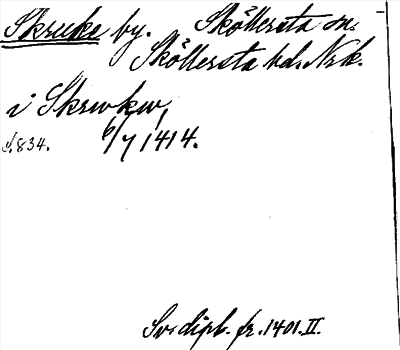 Skruke by. Sköllersta sn.
Sköllersta hd. Nrk.
i Skrwkw,
s. 834. 6/7 1414.
Sv. dipl. fr. 1401. II.